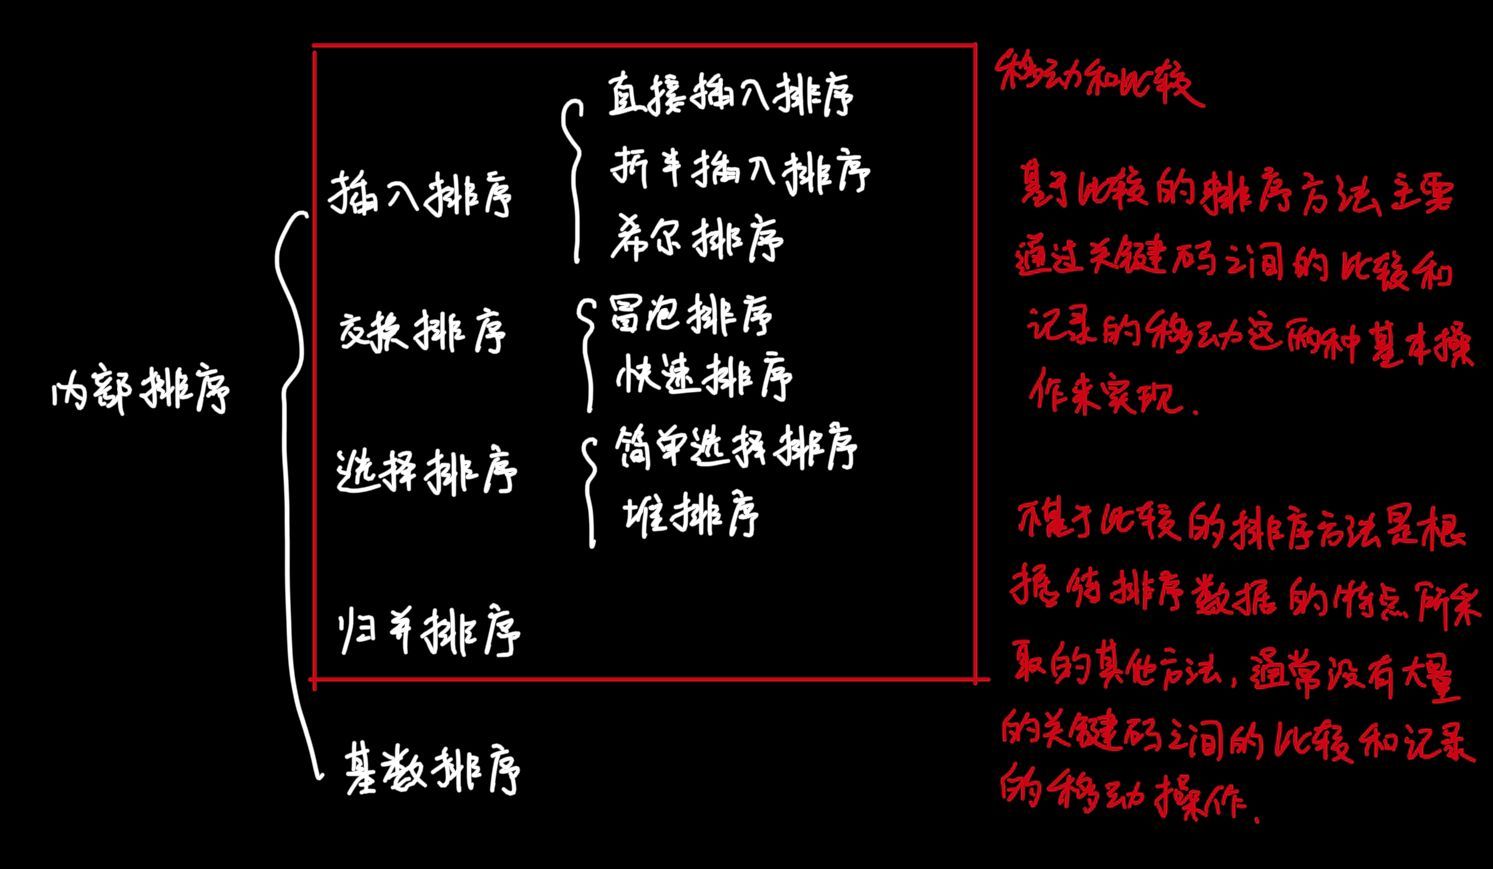 内部排序
插入排序
直接插入排序
折半插入排序
希尔排序
交换排序
冒泡排序
快速排序
选择排序
简单选择排序
堆排序
归并排序
基数排序
移动和比较
基于比较的排序方法主要
通过关键码之间的比较和
记录的移动这两种基本操
作来实现.
不基于比较的排序方法是根
据待排序数据的特点所采
取的其他方法,通常没有大量
的关键码之间的比较和记录
的移动操作.